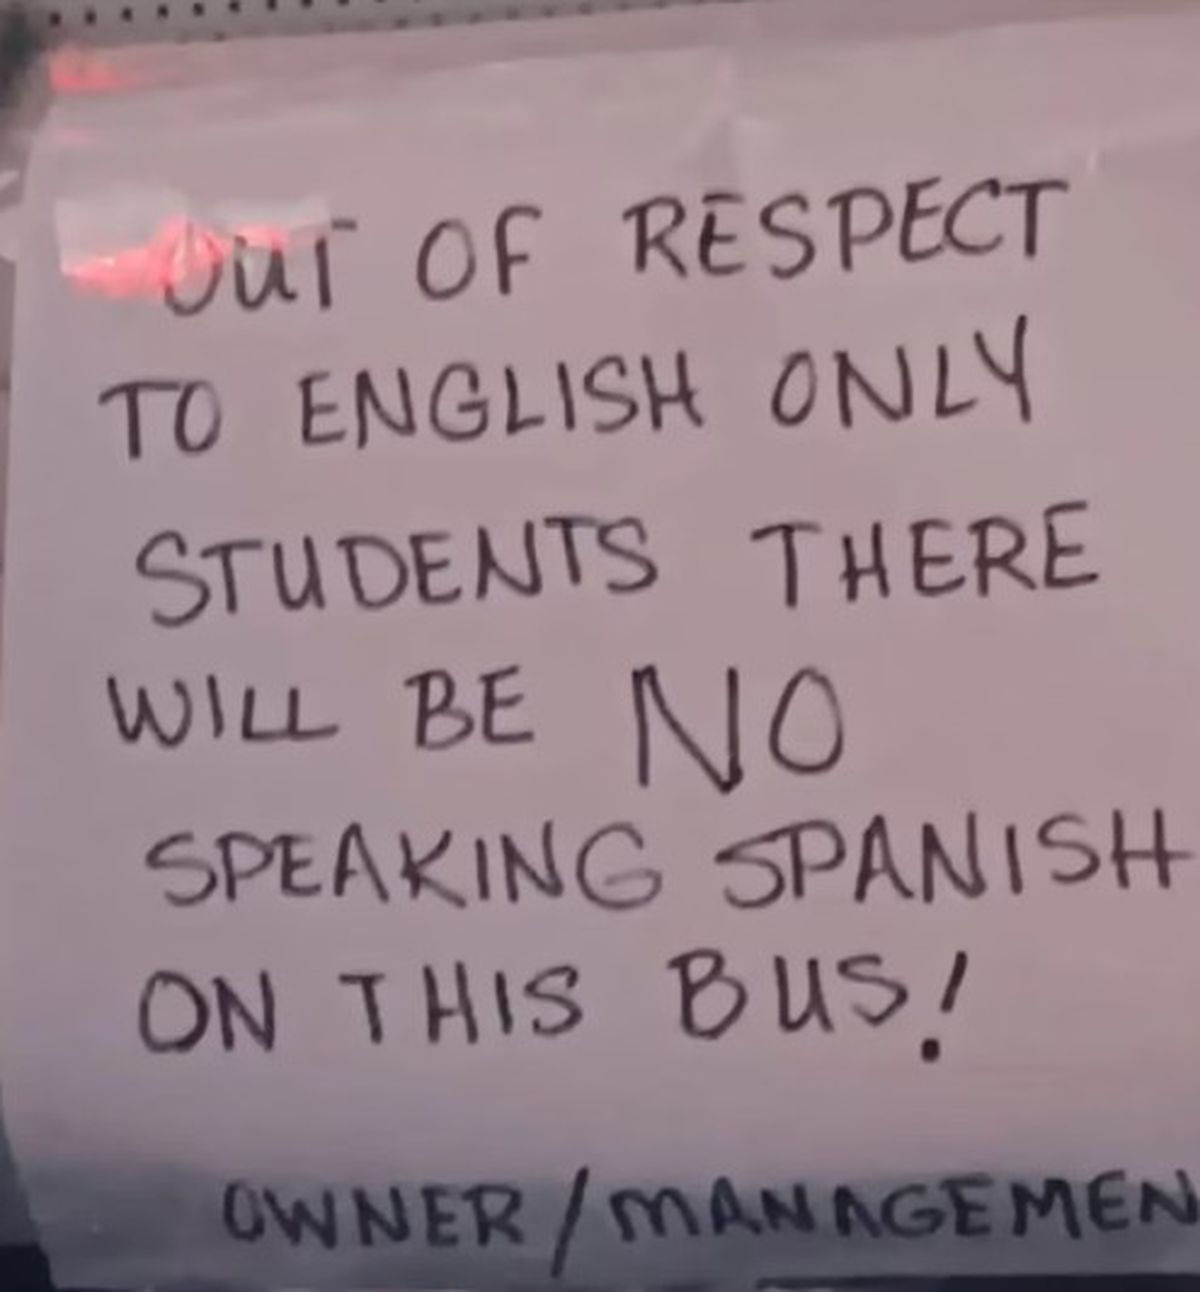 OUT OF RESPECT
TO ENGLISH ONLY
STUDENTS THERE
WILL BE NO
SPEAKING SPANISH
ON THIS BUS!
OWNER/MANAGEMEN